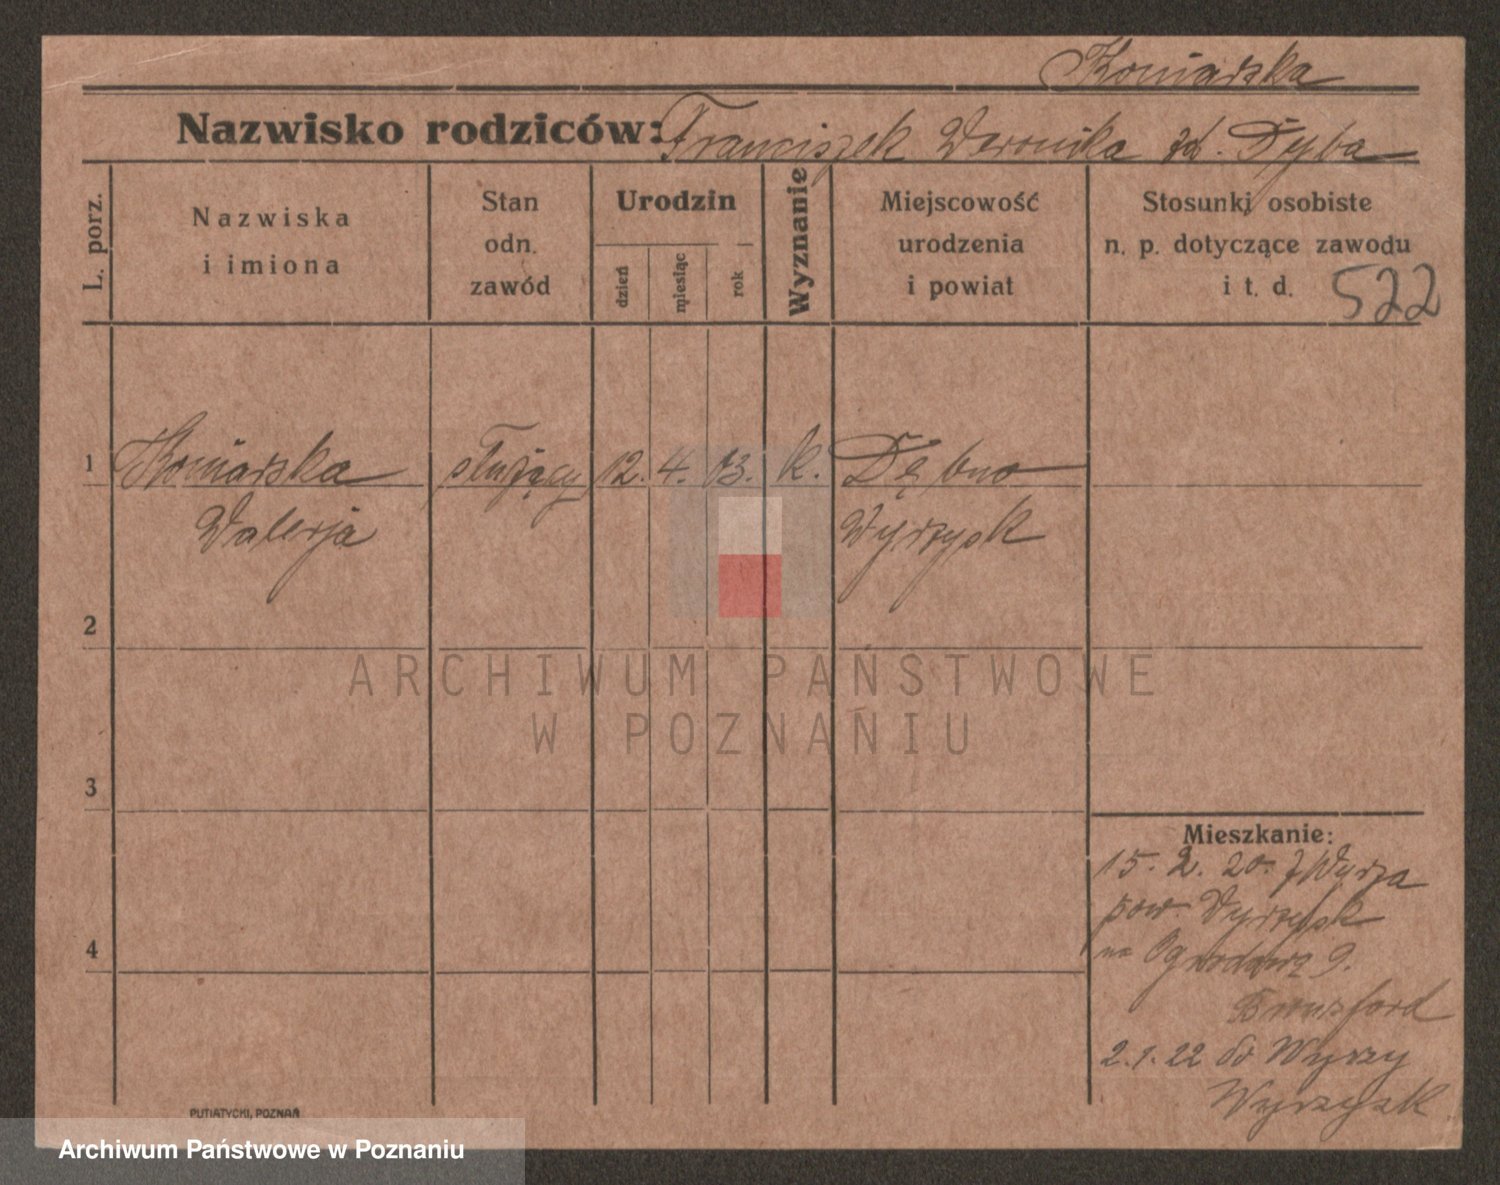 Koniarska
Nazwisko rodziców: Franciszek Weronika zd. Dyba
L. porz.
Nazwiska
i imiona
Stan
odn.
zawód
Urodzin
dzień
miesiąc
rok
Wyznanie
Miejscowość
urodzenia
i powiat
Stosunki osobiste
n. p. dotyczące zawodu
i t. d. 522
1 Koniarska służący 12. 4. 03. k. Dębno
Walerja Wyrzysk
2
3
4
Mieszkanie:
15. 2. 20. z Wyrza
pow. Wyrzysk
na 9.
2.1.22 do Wyrzy
Wyrzysk
PUTIATYCKI, POZNAŃ
ARCHIWUM PAŃSTWOWE
W POZNANIU
Archiwum Państwowe w Poznaniu